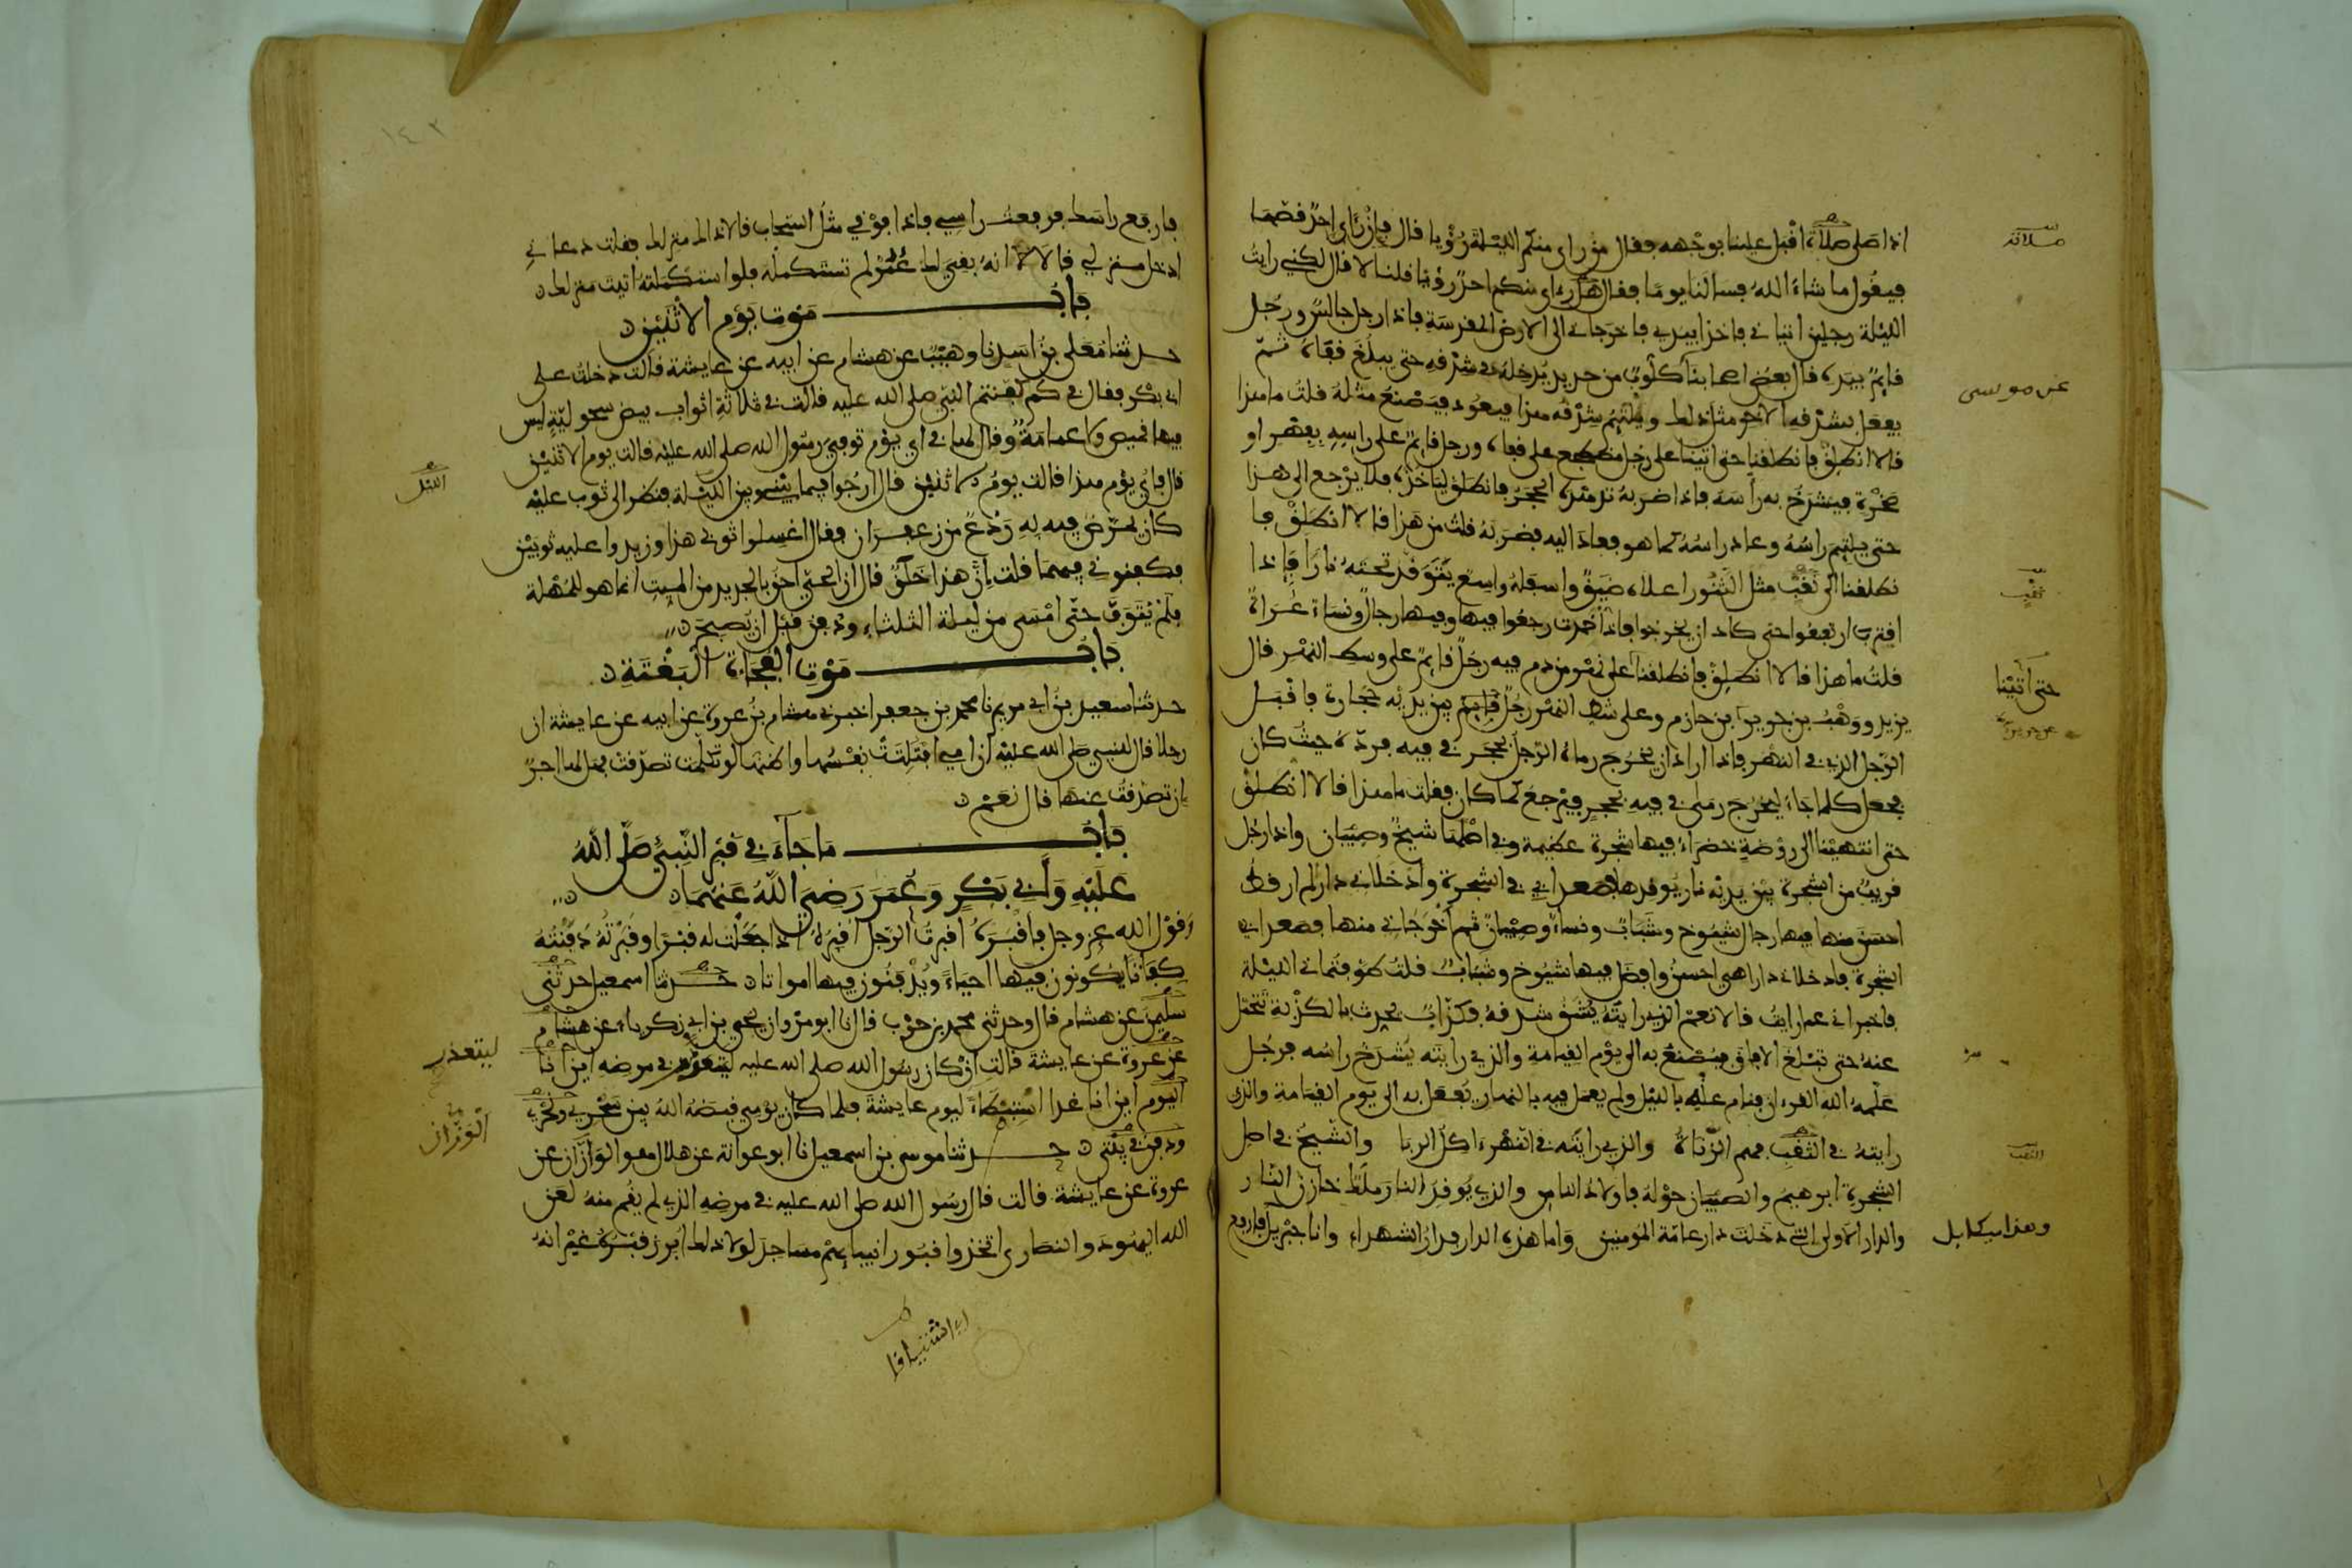 اذا صلى صلاة اقبل علينا بوجهه فقال من راى منكم الليلة رؤيا قال فإن رأى احد قصها
فيقول ما شاء الله فسالنا يوما فقال هل راى منكم احد رؤيا قلنا لا قال لكني رايت
الليلة رجلين اتياني فاخذا بيدي فاخرجاني الى الارض المقدسة فاذا رجل جالس ورجل
قايم بيده قال بعض اصحابنا كلوب من حديد يدخله في شدقه حتى يبلغ قفاه ثم
يفعل بشدقه الاخر مثل ذلك ويلتئم شدقه هذا فيعود فيصنع مثله قلت ما هذا
قالا انطلق فانطلقنا حتى اتينا على رجل مضطجع على قفاه ورجل قايم على راسه بفهر او
صخرة فيشدخ به راسه فاذا ضربه تدهده الحجر فانطلق لياخذه فلا يرجع الى هذا
حتى يلتيم راسه وعاد راسه كما هو فعاد اليه فضربه قلت من هذا قالا انطلق فا
نطلقنا الى نقب مثل التنور اعلاه ضيق واسفله واسع يتوقد تحته نارا فاذا
اقترب ارتفعوا حتى كاد ان يخرجوا فاذا خمدت رجعوا فيها وفيها رجال ونساء عراة
قلت ما هذا قالا انطلق فانطلقنا على نهر من دم فيه رجل قايم على وسط النهر قال
يزيد ووهب بن جرير بن حازم وعلى شط النهر رجل قايم بين يديه حجارة فاقبل
الرجل الذي في النهر فاذا اراد ان يخرج رماه الرجل بحجر في فيه فرده حيث كان
فجعل كلما جاء ليخرج رمى في فيه بحجر فيرجع كما كان فقلت ما هذا قالا انطلق
حتى انتهينا الى روضة خضراء فيها شجرة عظيمة وفي اصلها شيخ وصبيان واذا رجل
قريب من الشجرة بين يديه نار يوقدها فصعدا بي في الشجرة وادخلاني دارا لم ار قط
احسن منها فيها رجال شيوخ وشباب ونساء وصبيان ثم اخرجاني منها فصعدا بي
الشجرة فادخلاني دارا هي احسن وافضل فيها شيوخ وشباب قلت طوفتماني الليلة
فاخبراني عما رايت قالا نعم الذي رايته يشق شدقه فكذاب يحدث بالكذبة تحمل
عنه حتى تبلغ الافاق فيصنع به الى يوم القيامة والذي رايته يشدخ راسه فرجل
علمه الله القران فنام عنه بالليل ولم يعمل فيه بالنهار يفعل به الى يوم القيامة والذي
رايته في الثقب فهم الزناة والذي رايته في النهر اكل الربا والشيخ في اصل
الشجرة ابرهيم والصبيان حوله فاولاد الناس والذي يوقد النار ملك خازن النار
والدار الاولى التي دخلت دار عامة المؤمنين واما هذه الدار فدار الشهداء وانا جبريل فارفع
صلاته
عن موسى
ثقب
حتى أتينا
عن جرير
الثقب
وهذا ميكايل
١٤٢
فارفع راسك فرفعت راسي فاذا فوقي مثل السحاب قالا ذاك منزلك فقلت دعاني
ادخل منزلي قالا انه بقي لك عمر لم تستكمله فلو استكملته اتيت منزلك
باب موت يوم الاثنين
حدثنا معلى بن اسد نا وهيب عن هشام عن ابيه عن عايشة قالت دخلت على
ابي بكر فقال في كم كفنتم النبي صلى الله عليه قالت في ثلاثة اثواب بيض سحولية ليس
فيها قميص ولا عمامة وقال لها في اي يوم توفي رسول الله صلى الله عليه قالت يوم الاثنين
قال فاي يوم هذا قالت يوم الاثنين قال ارجوا فيما بيني وبين الليلة فنظر الى ثوب عليه
كان يمرض فيه به ردع من زعفران فقال اغسلوا ثوبي هذا وزيدوا عليه ثوبين
فكفنوني فيهما قلت إن هذا خلق قال ان الحي احق بالجديد من الميت انما هو للمهلة
فلم يتوف حتى امسى من ليلة الثلثاء ودفن قبل ان يصبح
باب موت الفجاءة البغتة
حدثنا سعيد بن ابي مريم نا محمد بن جعفر اخبرني هشام بن عروة عن ابيه عن عايشة ان
رجلا قال للنبي صلى الله عليه ان امي افتلتت نفسها واظنها لو تكلمت تصدقت فهل لها اجر
إن تصدقت عنها قال نعم
باب ما جاء في قبر النبي صلى الله
عليه وأبي بكر وعمر رضي الله عنهما
وقول الله عز وجل فاقبره اقبرت الرجل اقبره اذا جعلت له قبرا وقبرته دفنته
كفاتا يكونون فيها احياء ويدفنون فيها امواتا حدثنا اسمعيل حدثني
سليمن عن هشام قال وحدثني محمد بن حرب قال نا ابو مروان يحيى بن ابي زكرياء عن هشام
عن عروة عن عايشة قالت ان كان رسول الله صلى الله عليه ليتعذر في مرضه اين انا
اليوم اين انا غدا استبطاء ليوم عايشة فلما كان يومي قبضه الله بين سحري ونحري
ودفن في بيتي حدثنا موسى بن اسمعيل نا ابو عوانة عن هلال هو الوزان عن
عروة عن عايشة قالت قال رسول الله صلى الله عليه في مرضه الذي لم يقم منه لعن
الله اليهود والنصارى اتخذوا قبور انبيايهم مساجد لولا ذلك ابرز قبره غير انه
الليل
ليتعذر
الوزان
اي اشتياقا